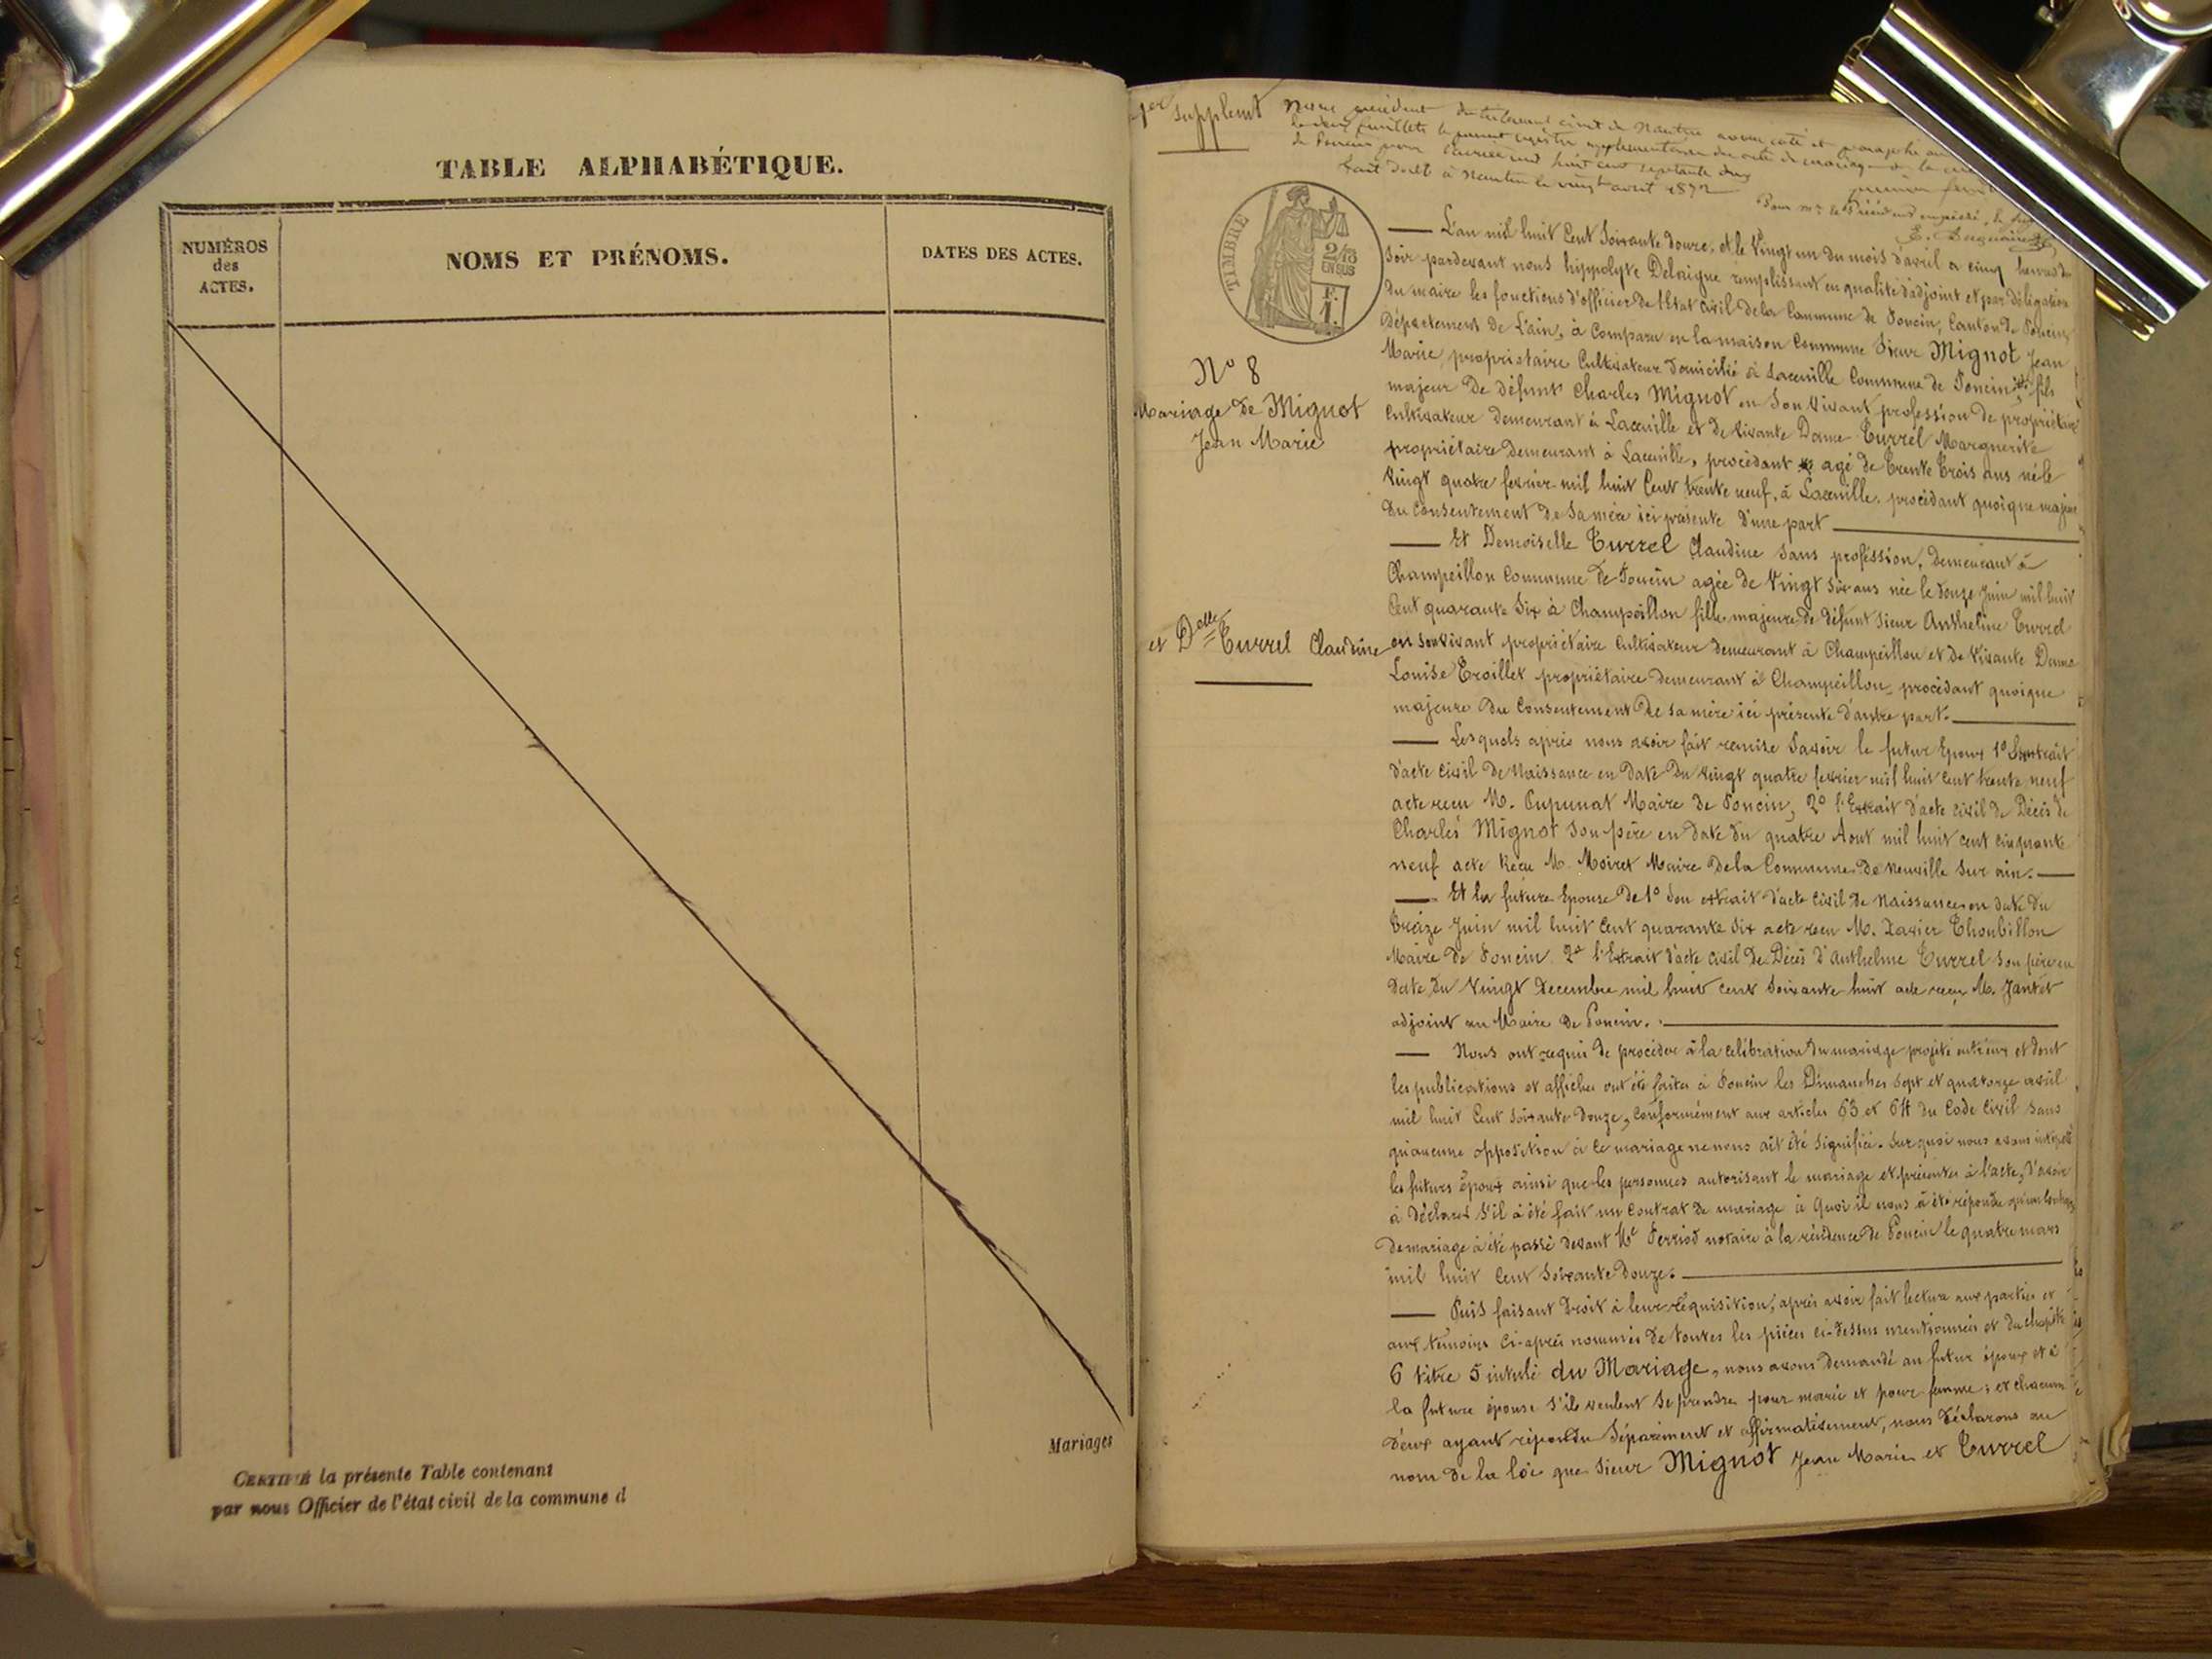 TABLE ALPHABÉTIQUE.
NUMÉROS
des
ACTES.
NOMS ET PRÉNOMS.
DATES DES ACTES.
Mariages
CERTIFIÉ la présente Table contenant
par nous Officier de l'état civil de la commune d
1er Supplemt
Nous président du tribunal civil de Nantua avons coté et paraphé
le
de Poncin pour mil huit cent septante deux
Fait à Nantua le vingt avril 1872
Pour mr le Président empêché, le Juge
TIMBRE
2/10
EN SUS
F.
1.
N° 8
Mariage de Mignot
Jean Marie
et Delle Turrel Claudine
L'an mil huit Cent Soixante douze, et le Vingt un du mois d'avril a cinq heures du
Soir pardevant nous hippolyte Delaigue remplissant en qualité d'adjoint et par délégation
du maire les fonctions d'officier de l'Etat Civil de la Commune de Poncin, Canton de Poncin
Département de L'ain, à Comparu en la maison Commune Sieur Mignot Jean
Marie, propriétaire Cultivateur domicilié à Lacuille Commune de Poncin, fils
majeur de défunt Charles Mignot en Son Vivant profession de propriétaire
Cultivateur demeurant à Lacuille et de Vivante Dame Turrel Marguerite
propriétaire demeurant à Lacuille, procédant agé de Trente Trois ans né le
Vingt quatre fevrier mil huit Cent trente neuf, à Lacuille. procédant quoique majeur
du Consentement de Sa mère ici présente d'une part
Et Demoiselle Turrel Claudine Sans profession, demeurant à
Champeillon Commune de Poncin agée de Vingt Six ans née le douze Juin mil huit
Cent quarante Six à Champeillon fille majeure de défunt Sieur Anthelme Turrel
en Son Vivant propriétaire Cultivateur demeurant à Champeillon et de Vivante Dame
Louise Troillet propriétaire demeurant à Champeillon, procédant quoique
majeure du Consentement de Sa mère ici présente d'autre part.
Lesquels après nous avoir fait remise Savoir le futur Epoux 1° Extrait
d'acte Civil de Naissance en Date du Vingt quatre fevrier mil huit Cent trente neuf
acte reçu M. Cupunat Maire de Poncin, 2° l'Extrait d'acte Civil de Décès de
Charles Mignot Son père en date du quatre Aout mil huit cent cinquante
neuf acte Reçu M. Moiret Maire de la Commune de Neuville Sur ain.
Et la future Epouse de 1° Son extrait d'acte Civil de Naissance en date du
Treize Juin mil huit Cent quarante Six acte reçu M. Xavier Thoubillon
Maire de Poncin 2° l'Extrait d'acte Civil de Décès d'Anthelme Turrel Son père en
Date du Vingt Decembre mil huit cent Soixante huit acte reçu M. Jantet
adjoint au Maire de Poncin.
Nous ont requis de procéder à la célébration du mariage projeté entr'eux et dont
les publications et affiches ont été faites à Poncin les Dimanches Sept et quatorze avril
mil huit Cent Soixante Douze, Conformément aux articles 63 et 64 du Code Civil Sans
qu'aucune opposition à Ce mariage ne nous ait été Signifiée. Sur quoi nous avons interpellé
les futurs époux ainsi que les personnes autorisant le mariage et présentes à l'acte, d'avoir
à Déclarer S'il à été fait un Contrat de mariage à Quoi il nous à été répondu qu'un Contrat
de mariage à été passé devant Me Perriod notaire à la résidence de Poncin le quatre mars
mil huit Cent Soixante Douze.
Puis faisant Droit à leur réquisition, après avoir fait lecture aux parties et
aux témoins Ci-après nommés de toutes les pièces ci-dessus mentionnées et du chapitre
6 titre 5 intulé du Mariage, nous avons Demandé au futur époux et à
la future épouse S'ils veulent Se prendre pour mari et pour femme ; et chacun
d'eux ayant répondu Séparément et affirmativement, nous Déclarons au
nom de la loi que Sieur Mignot Jean Marie et Turrel